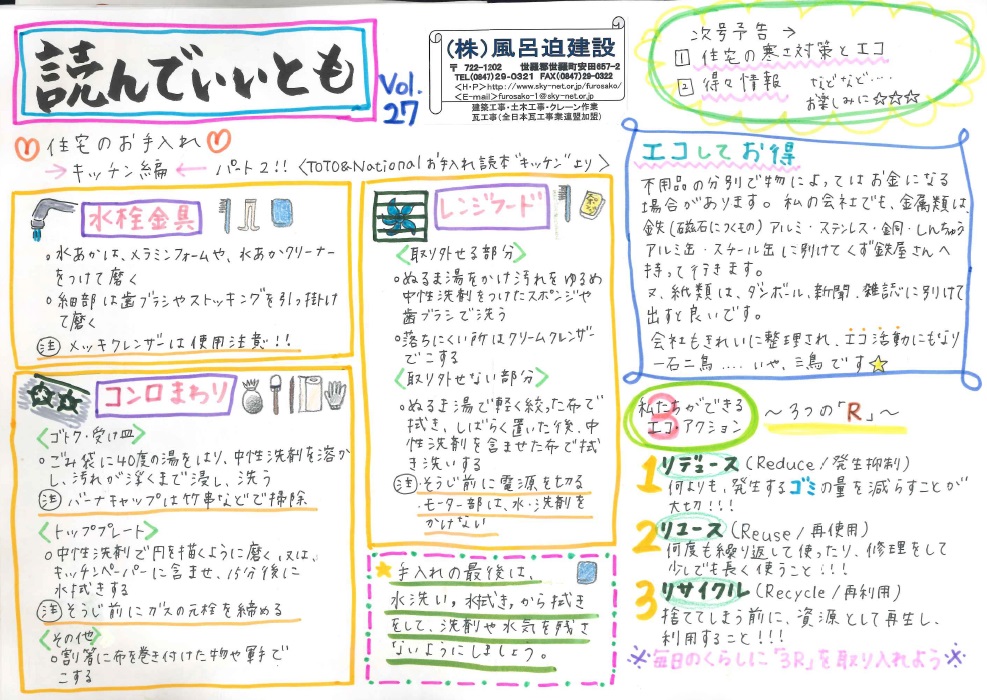 読んでいいとも
Vol.
27
(株)風呂迫建設
〒 722-1202 世羅郡世羅町安田657-2
TEL(0847)29-0321 FAX(0847)29-0322
<H・P>http://www.sky-net.or.jp/furosako/
<E-mail>furosako-1@sky-net.or.jp
建築工事・土木工事・クレーン作業
瓦工事(全日本瓦工事業連盟加盟)
次号予告→
1 住宅の寒さ対策とエコ
2 得々情報 などなど....
お楽しみに☆☆☆
♡住宅のお手入れ♡
→キッチン編← パート2!! <TOTO&Nationalお手入れ読本“キッチン”より>
水栓金具
○水あかは、メラミンフォームや、水あかクリーナー
をつけて磨く
○細部は歯ブラシやストッキングを引っ掛け
て磨く
注 メッキクレンザーは使用注意!!
コンロまわり
<ゴトク・受け皿>
○ごみ袋に40度の湯をはり、中性洗剤を溶か
し、汚れが浮くまで浸し、洗う
注 バーナキャップは竹串などで掃除
<トッププレート>
○中性洗剤で円を描くように磨く又は、
キッチンペーパーに含ませ、15分後に
水拭きする
注 そうじ前にガスの元栓を締める
<その他>
○割箸に布を巻き付けた物や軍手で
こする
レンジフード
<取り外せる部分>
○ぬるま湯をかけ汚れをゆるめ
中性洗剤をつけたスポンジや
歯ブラシで洗う
○落ちにくい所はクリームクレンザー
でこする
<取り外せない部分>
○ぬるま湯で軽く絞った布で
拭き、しばらく置いた後、中
性洗剤を含ませた布で拭
き洗いする
注 そうじ前に電源を切る
・モーター部は、水・洗剤を
かけない
★手入れの最後は、
水洗い,水拭き,から拭き
をして、洗剤や水気を残さ
ないようにしましょう。
エコしてお得
不用品の分別で物によってはお金になる
場合があります。私の会社でも、金属類は、
鉄(磁石につくもの)アルミ・ステンレス・銅・しんちゅう
アルミ缶・スチール缶に別けてくず鉄屋さんへ
持って行きます。
又、紙類は、ダンボール、新聞、雑誌に別けて
出すと良いです。
会社もきれいに整理され、エコ活動にもなり
一石二鳥....いや、三鳥です☆
3
私たちができる
エコ・アクション
～3つの「R」～
1 リデュース(Reduce/発生抑制)
何よりも、発生するゴミの量を減らすことが
大切!!!
2 リユース(Reuse/再使用)
何度も繰り返して使ったり、修理をして
少しでも長く使うこと!!!
3 リサイクル(Recycle/再利用)
捨ててしまう前に、資源として再生し、
利用すること!!!
※毎日のくらしに「3R」を取り入れよう※